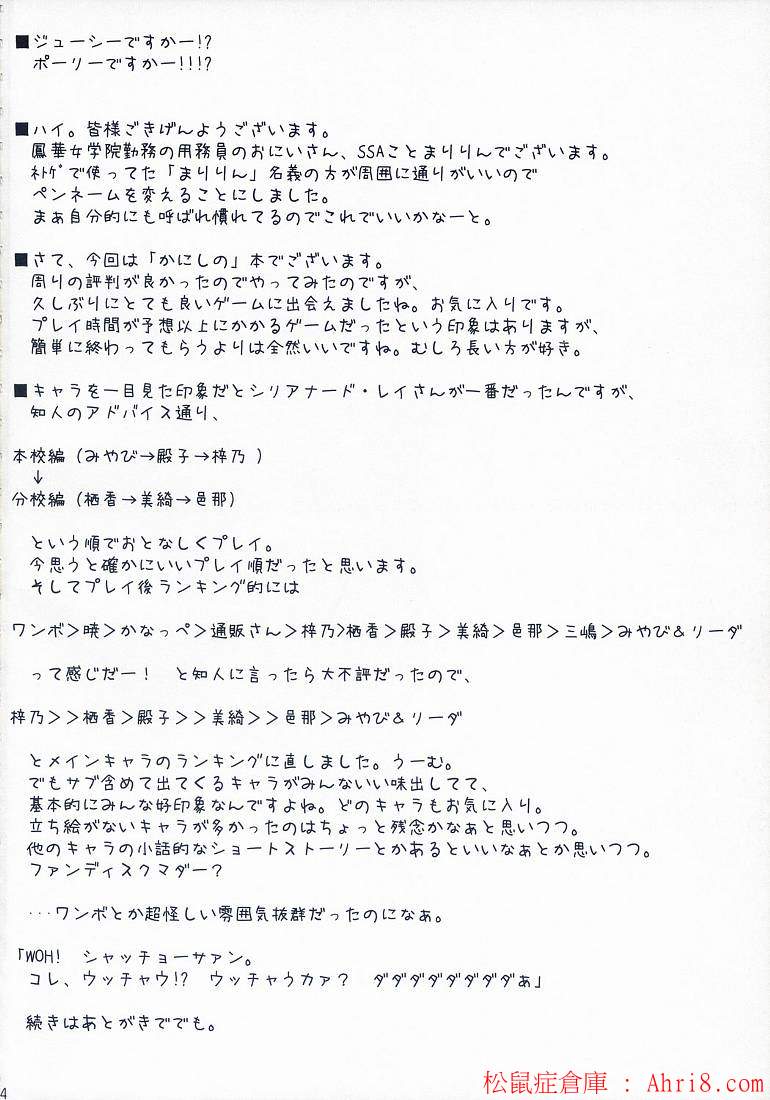 ■ジューシーですかー!?
ポーリーですかー!!!?
■ハイ。皆様ごきげんようございます。
鳳華女学院勤務の用務員のおにいさん、SSAことまりりんでございます。
ﾈﾄｹﾞで使ってた「まりりん」名義の方が周囲に通りがいいので
ペンネームを変えることにしました。
まぁ自分的にも呼ばれ慣れてるのでこれでいいかなーと。
■さて、今回は「かにしの」本でございます。
周りの評判が良かったのでやってみたのですが、
久しぶりにとても良いゲームに出会えましたね。お気に入りです。
プレイ時間が予想以上にかかるゲームだったという印象はありますが、
簡単に終わってもらうよりは全然いいですね。むしろ長い方が好き。
■キャラを一目見た印象だとシリアナード・レイさんが一番だったんですが、
知人のアドバイス通り、
本校編（みやび→殿子→梓乃 ）
↓
分校編（栖香→美綺→邑那）
という順でおとなしくプレイ。
今思うと確かにいいプレイ順だったと思います。
そしてプレイ後ランキング的には
ワンボ＞暁＞かなっぺ＞通販さん＞梓乃>栖香＞殿子＞美綺＞邑那＞三嶋＞みやび＆リーダ
って感じだー！　と知人に言ったら大不評だったので、
梓乃＞＞栖香＞殿子＞＞美綺＞＞邑那＞みやび＆リーダ
とメインキャラのランキングに直しました。うーむ。
でもサブ含めて出てくるキャラがみんないい味出してて、
基本的にみんな好印象なんですよね。どのキャラもお気に入り。
立ち絵がないキャラが多かったのはちょっと残念かなぁと思いつつ。
他のキャラの小話的なショートストーリーとかあるといいなぁとか思いつつ。
ファンディスクマダー？
･･･ワンボとか超怪しい雰囲気抜群だったのになぁ。
「WOH!　シャッチョーサァン。
コレ、ウッチャウ!?　ウッチャうカァ？　ダダダダダダダダぁ」
続きはあとがきででも。
4
松鼠症倉庫 : Ahri8.com